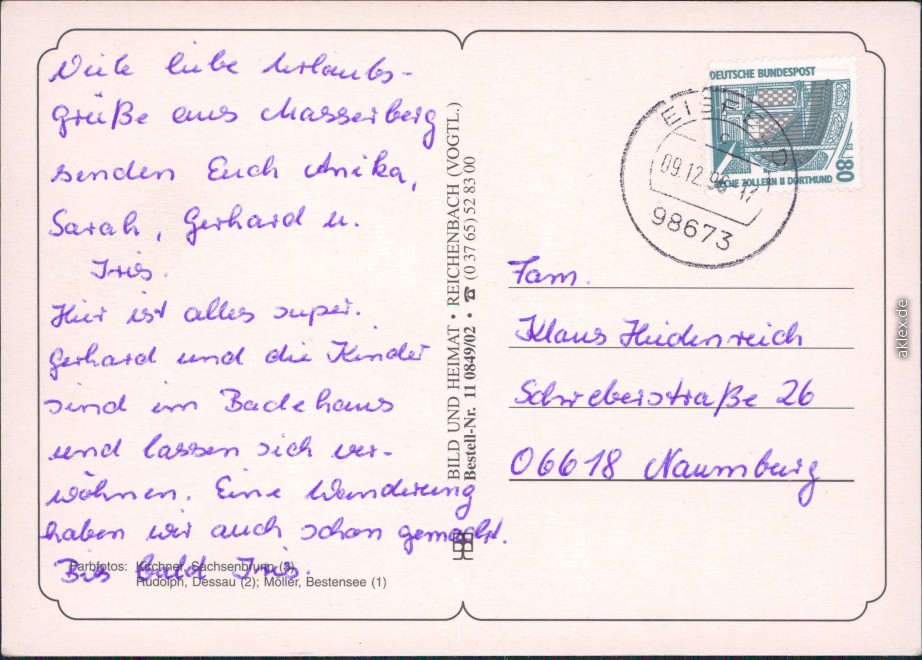 Viele liebe Urlaubs-
grüße aus Masserberg
senden Euch Anika,
Sarah, Gerhard u.
Iris.
Hier ist alles super.
Gerhard und die Kinder
sind im Badehaus
und lassen sich ver-
wöhnen. Eine Wanderung
haben wir auch schon gemacht.
Bis bald Iris.
Farbfotos: Kirchner, Sachsenbrunn (3)
Rudolph, Dessau (2); Möller, Bestensee (1)
BILD UND HEIMAT • REICHENBACH (VOGTL.)
Bestell-Nr. 11 0849/02 • ☎ (0 37 65) 52 83 00
DEUTSCHE BUNDESPOST
80
ZOLLERN II DORTMUND
EISFELD
09.12.96-17
98673
Fam.
Klaus Heidenreich
Schreberstraße 26
06618 Naumburg
aklex.de